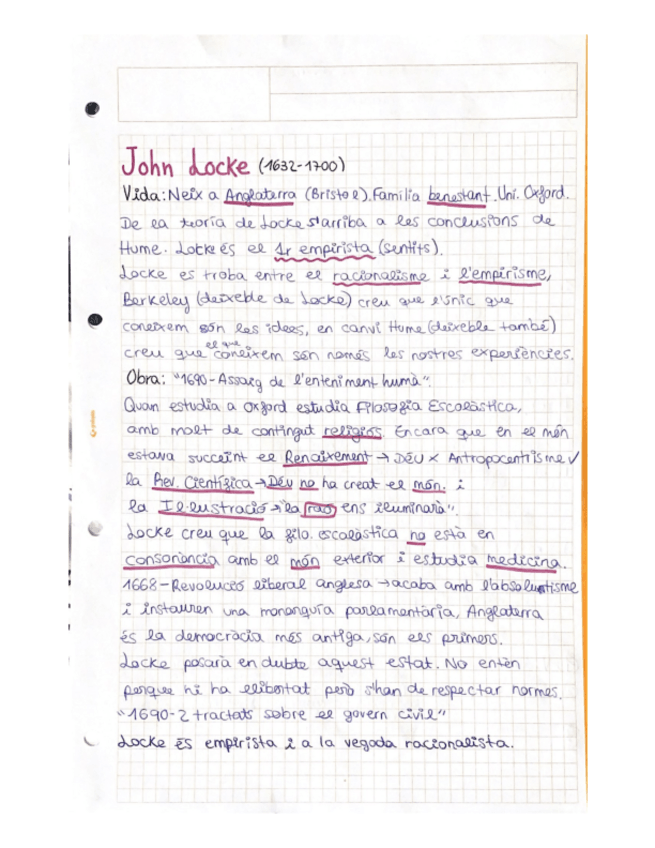 John Locke (1632-1700)
Vida: Neix a Anglaterra (Bristol). Família benestant. Uni. Oxford.
De la teoria de Locke s'arriba a les conclusions de
Hume. Locke és el 1r empirista (sentits).
Locke es troba entre el racionalisme i l'empirisme,
Berkeley (deixeble de Locke) creu que l'únic que
coneixem són les idees, en canvi Hume (deixeble també)
creu que el que coneixem són només les nostres experiències.
Obra: "1690-Assaig de l'enteniment humà".
Quan estudia a Oxford estudia Filosofia Escolàstica,
amb molt de contingut religiós. Encara que en el món
estava succeint el Renaixement → DÉU x Antropocentrisme ✓
la Rev. Científica → Déu no ha creat el món. i
la Il·lustració → "la raó ens il·luminarà".
Locke creu que la filo. escolàstica no està en
consonància amb el món exterior i estudia medicina.
1668-Revolució liberal anglesa → acaba amb l'absolutisme
i instauren una monarquia parlamentària, Anglaterra
és la democràcia més antiga, són els primers.
Locke posarà en dubte aquest estat. No entén
perque hi ha llibertat però s'han de respectar normes.
"1690-2 tractats sobre el govern civil"
Locke és empirista i a la vegada racionalista.